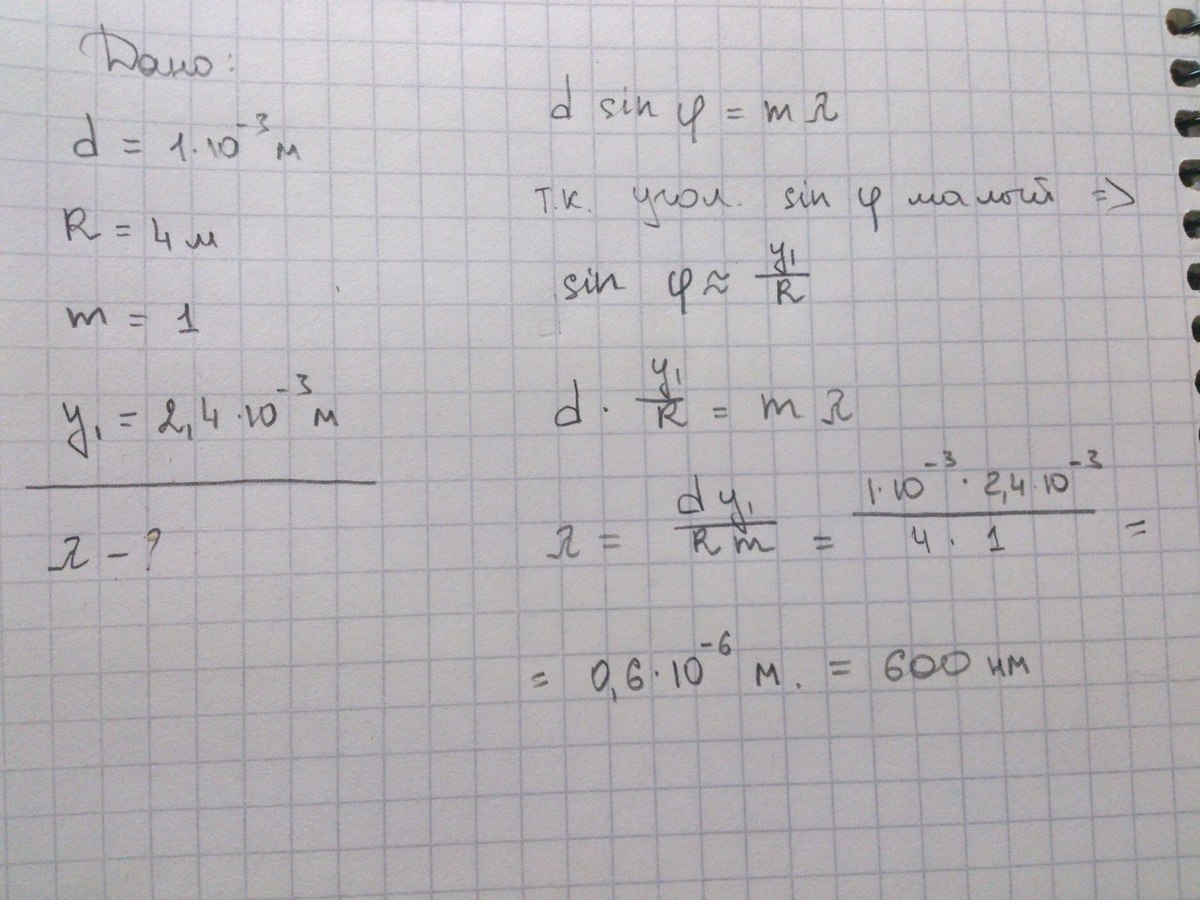 Дано:
d = 1·10⁻³ м
R = 4 м
m = 1
y₁ = 2,4·10⁻³ м
λ – ?
d sin φ = m λ
т.к. угол. sin φ малый =>
sin φ ≈ y₁/R
d · y₁/R = m λ
λ = d y₁/R m = 1·10⁻³ · 2,4·10⁻³/4 · 1 =
= 0,6·10⁻⁶ м. = 600 нм